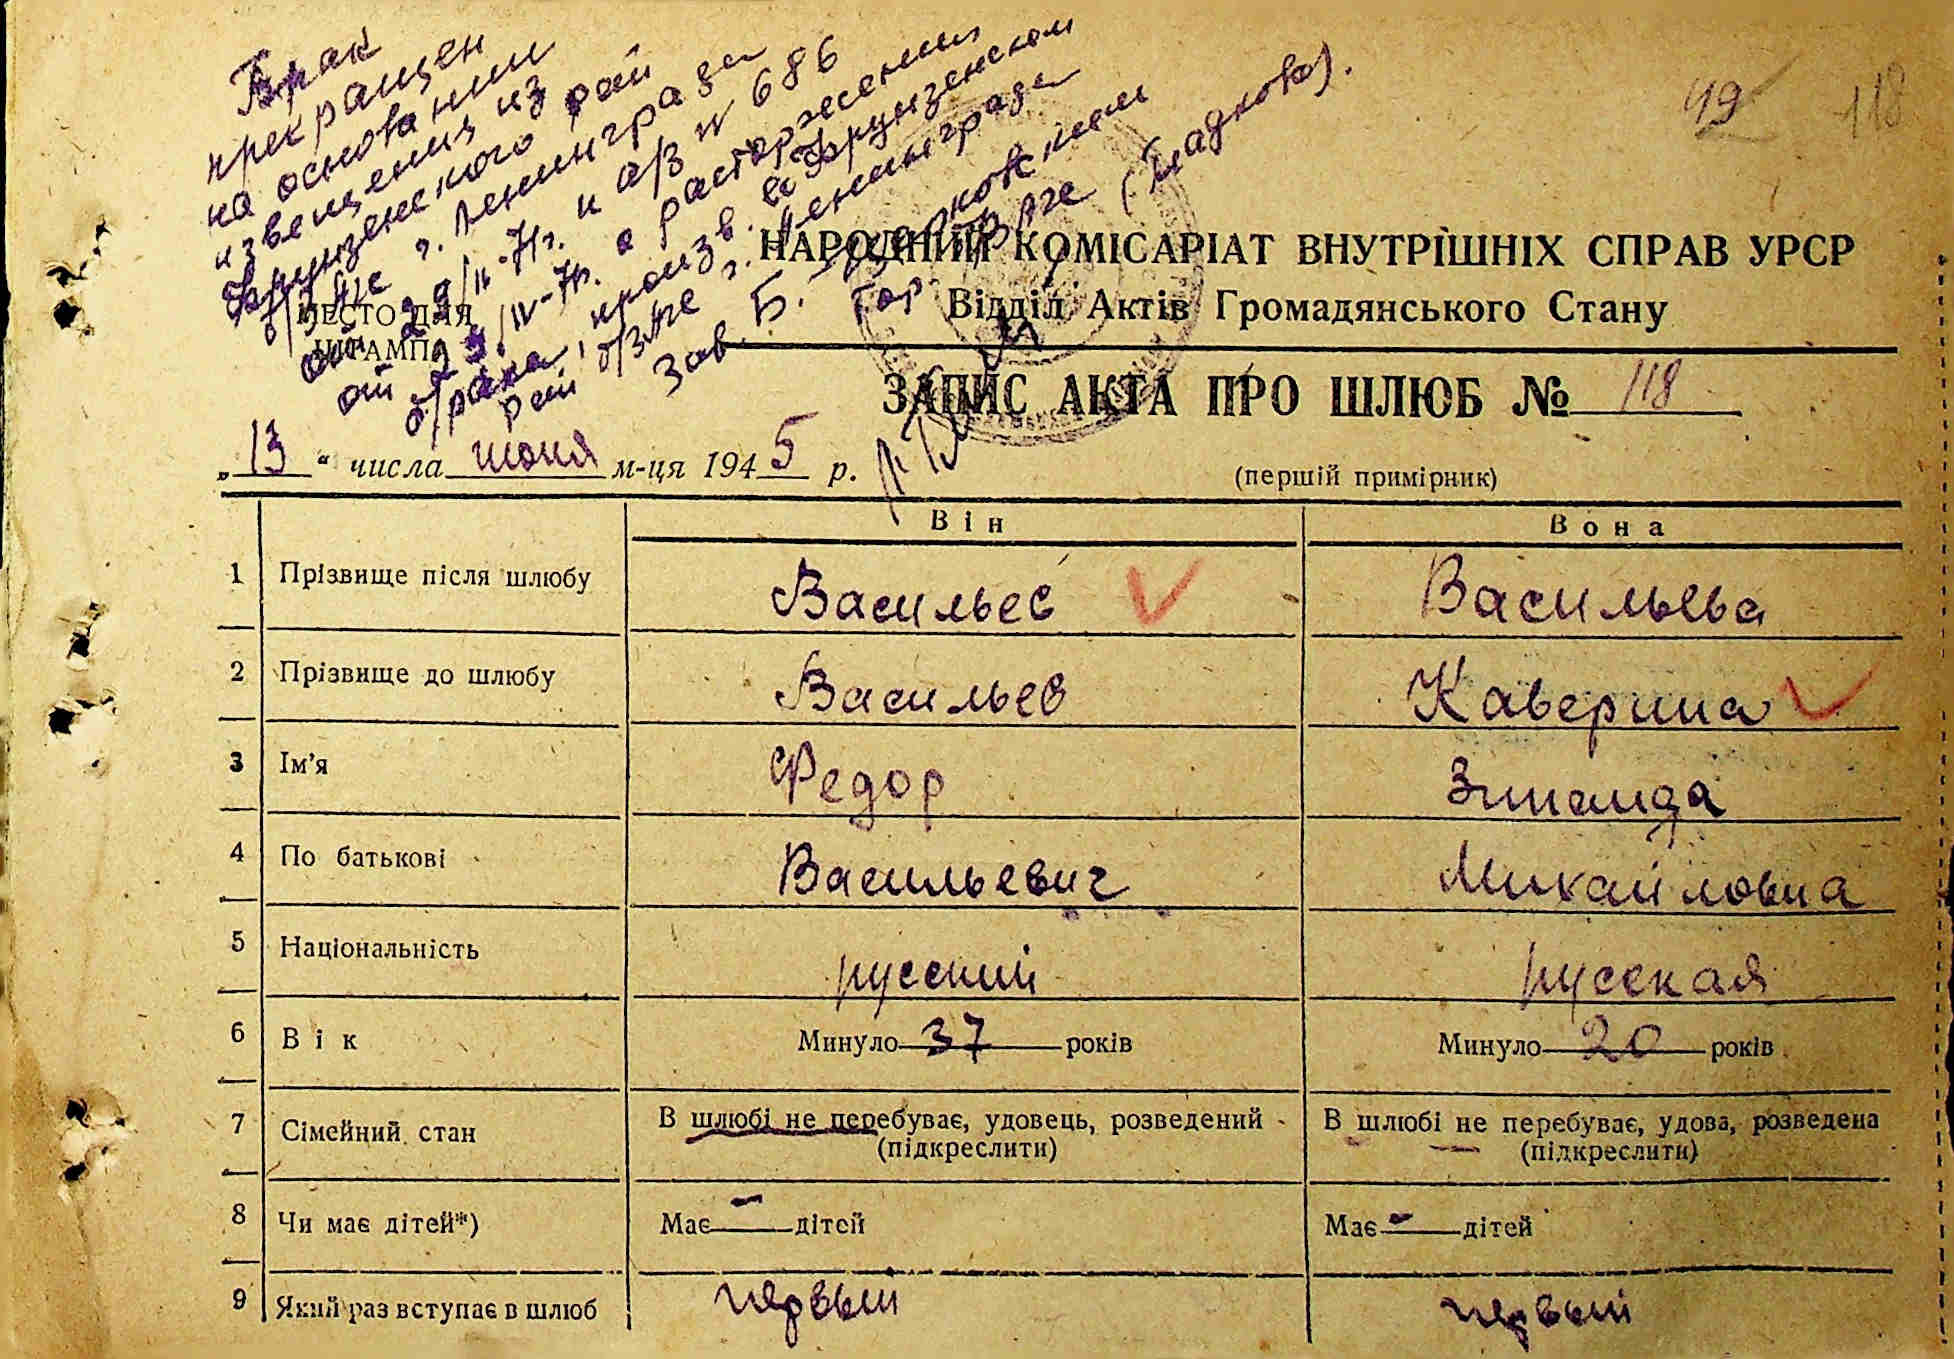 Брак
прекращен
на основании
извещения из
Фрунзенского рай
б/ЗАГС г. Ленинграда
от 29/IV-71г. и а/з № 686
от 29/IV-71г. о расторжении
брака, произв. в Фрунзенском
рай б/ЗАГСе г. Ленинграда
Зав. Б.-
Гор (Гладкова).
49 118
НАРОДНИЙ КОМІСАРІАТ ВНУТРІШНІХ СПРАВ УРСР
Відділ Актів Громадянського Стану
МЕСТО ДЛЯ
ШТАМПА
ЗАПИС АКТА ПРО ШЛЮБ № 118
„13“ числа июня м-ця 1945 р.
(першій примірник)
Він Вона
1 Прізвище після шлюбу Васильев Васильева
2 Прізвище до шлюбу Васильев Каверина
3 Ім'я Федор Зинаида
4 По батькові Васильевич Михайловна
5 Національність русский русская
6 Вік Минуло 37 років Минуло 20 років
7 Сімейний стан В шлюбі не перебуває, удовець, розведений В шлюбі не перебуває, удова, розведена
(підкреслити) (підкреслити)
8 Чи має дітей*) Має - дітей Має - дітей
9 Який раз вступає в шлюб первый первый